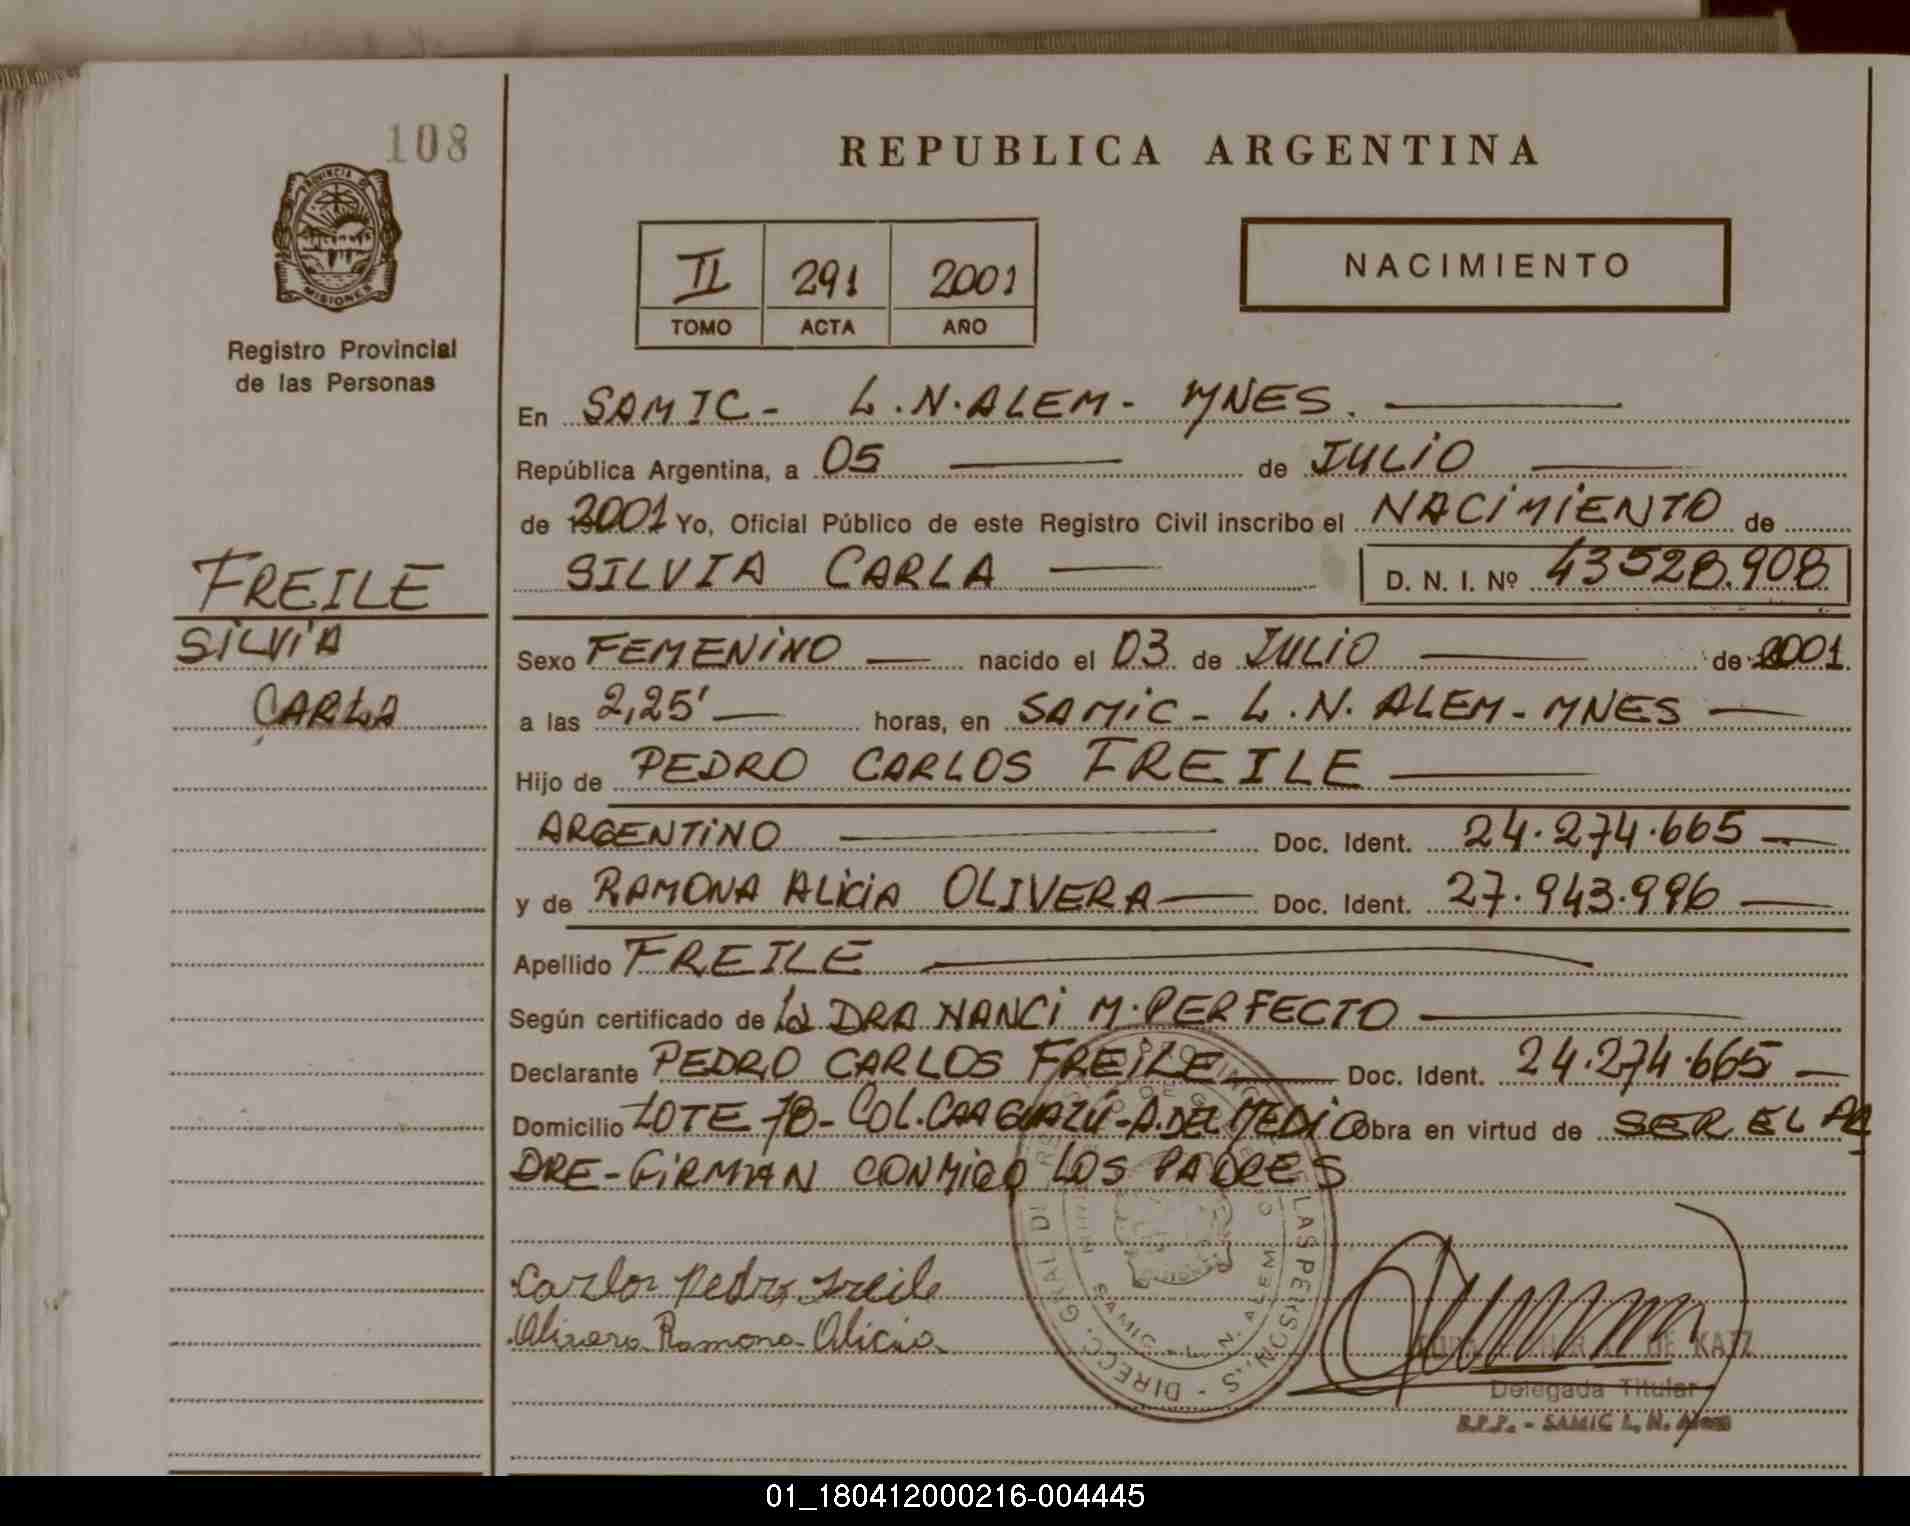 108
REPUBLICA ARGENTINA
PROVINCIA DE
MISIONES
II 291 2001
TOMO ACTA AÑO
NACIMIENTO
Registro Provincial
de las Personas
En SAMIC - L.N.ALEM - MNES.
República Argentina, a 05 de JULIO
de 2001 Yo, Oficial Público de este Registro Civil inscribo el NACIMIENTO de
SILVIA CARLA D. N. I. Nº 43528.908
FREILE
SILVIA
CARLA
Sexo FEMENINO nacido el 03 de JULIO de 2001
a las 2,25' horas, en SAMIC - L.N. ALEM - MNES
Hijo de PEDRO CARLOS FREILE
ARGENTINO Doc. Ident. 24.274.665
y de RAMONA ALICIA OLIVERA Doc. Ident. 27.943.996
Apellido FREILE
Según certificado de LA DRA NANCI M. PERFECTO
Declarante PEDRO CARLOS FREILE Doc. Ident. 24.274.665
Domicilio LOTE 7B - COL. CAAGUAZÚ - A. DEL MEDIO Obra en virtud de SER EL PA
DRE - FIRMAN CONMIGO LOS PADRES
Carlos Pedro Freile
Olivera Ramona Alicia
DE KATZ
Delegada Titular
R.P.P. - SAMIC L. N. Alem
DIRECC. GRAL. DE LAS PERSONAS
SAMIC - L. N. ALEM
01_180412000216-004445